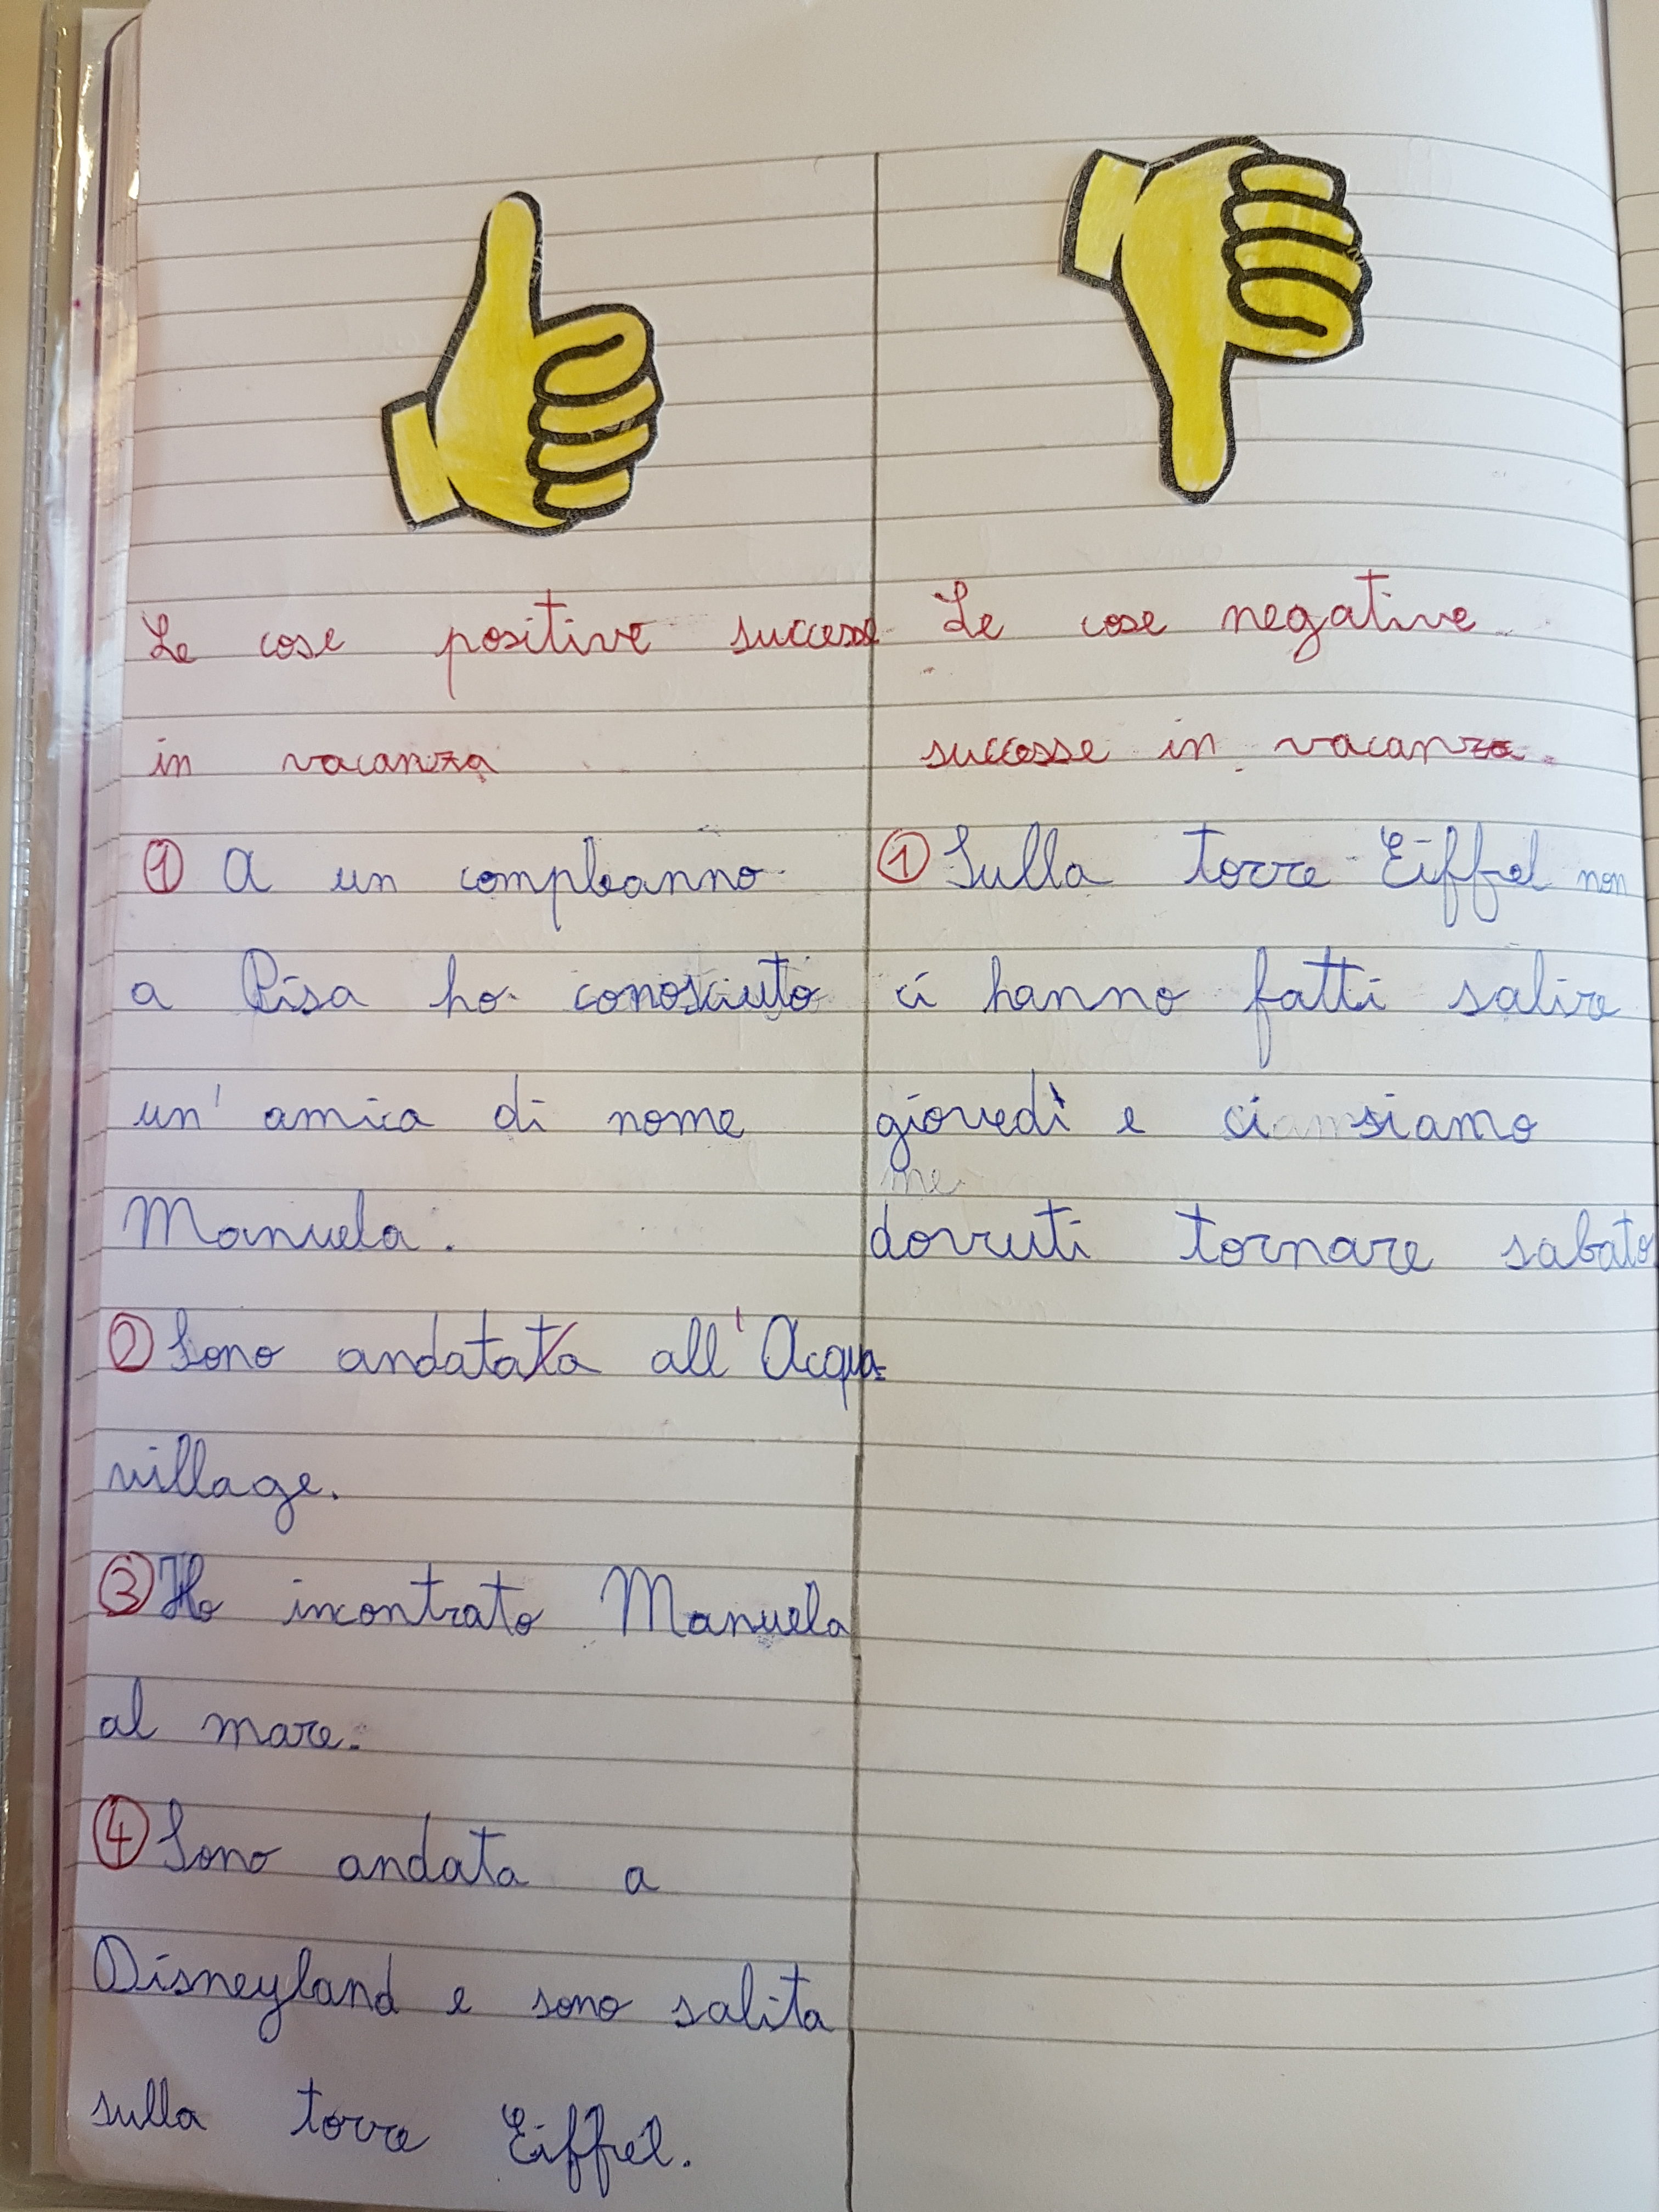 Le cose positive successe
in vacanza
① A un compleanno
a Pisa ho conosciuto
un' amica di nome
Manuela.
② Sono andatata all'Acqua=
village.
③ Ho incontrato Manuela
al mare.
④ Sono andata a
Disneyland e sono salita
sulla torre Eiffel.
Le cose negative
successe in vacanza.
① Sulla torre Eiffel non
ci hanno fatti salire
giovedì e ci siamo
dovuti tornare sabato